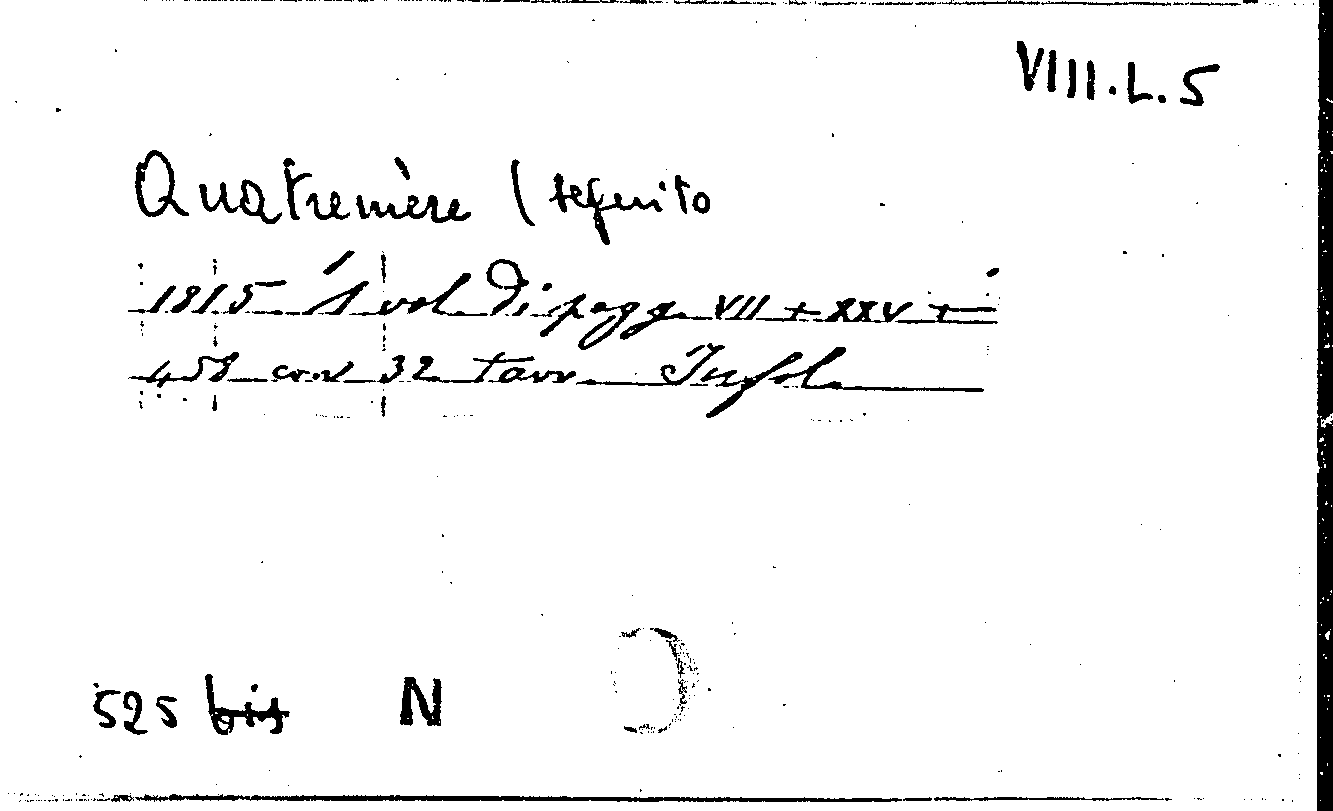 VIII.L.5
Quatremère (seguito
1815. 1 vol. di pagg. VII + XXV +
458 con 32 tavv. In fol.
525 bis N